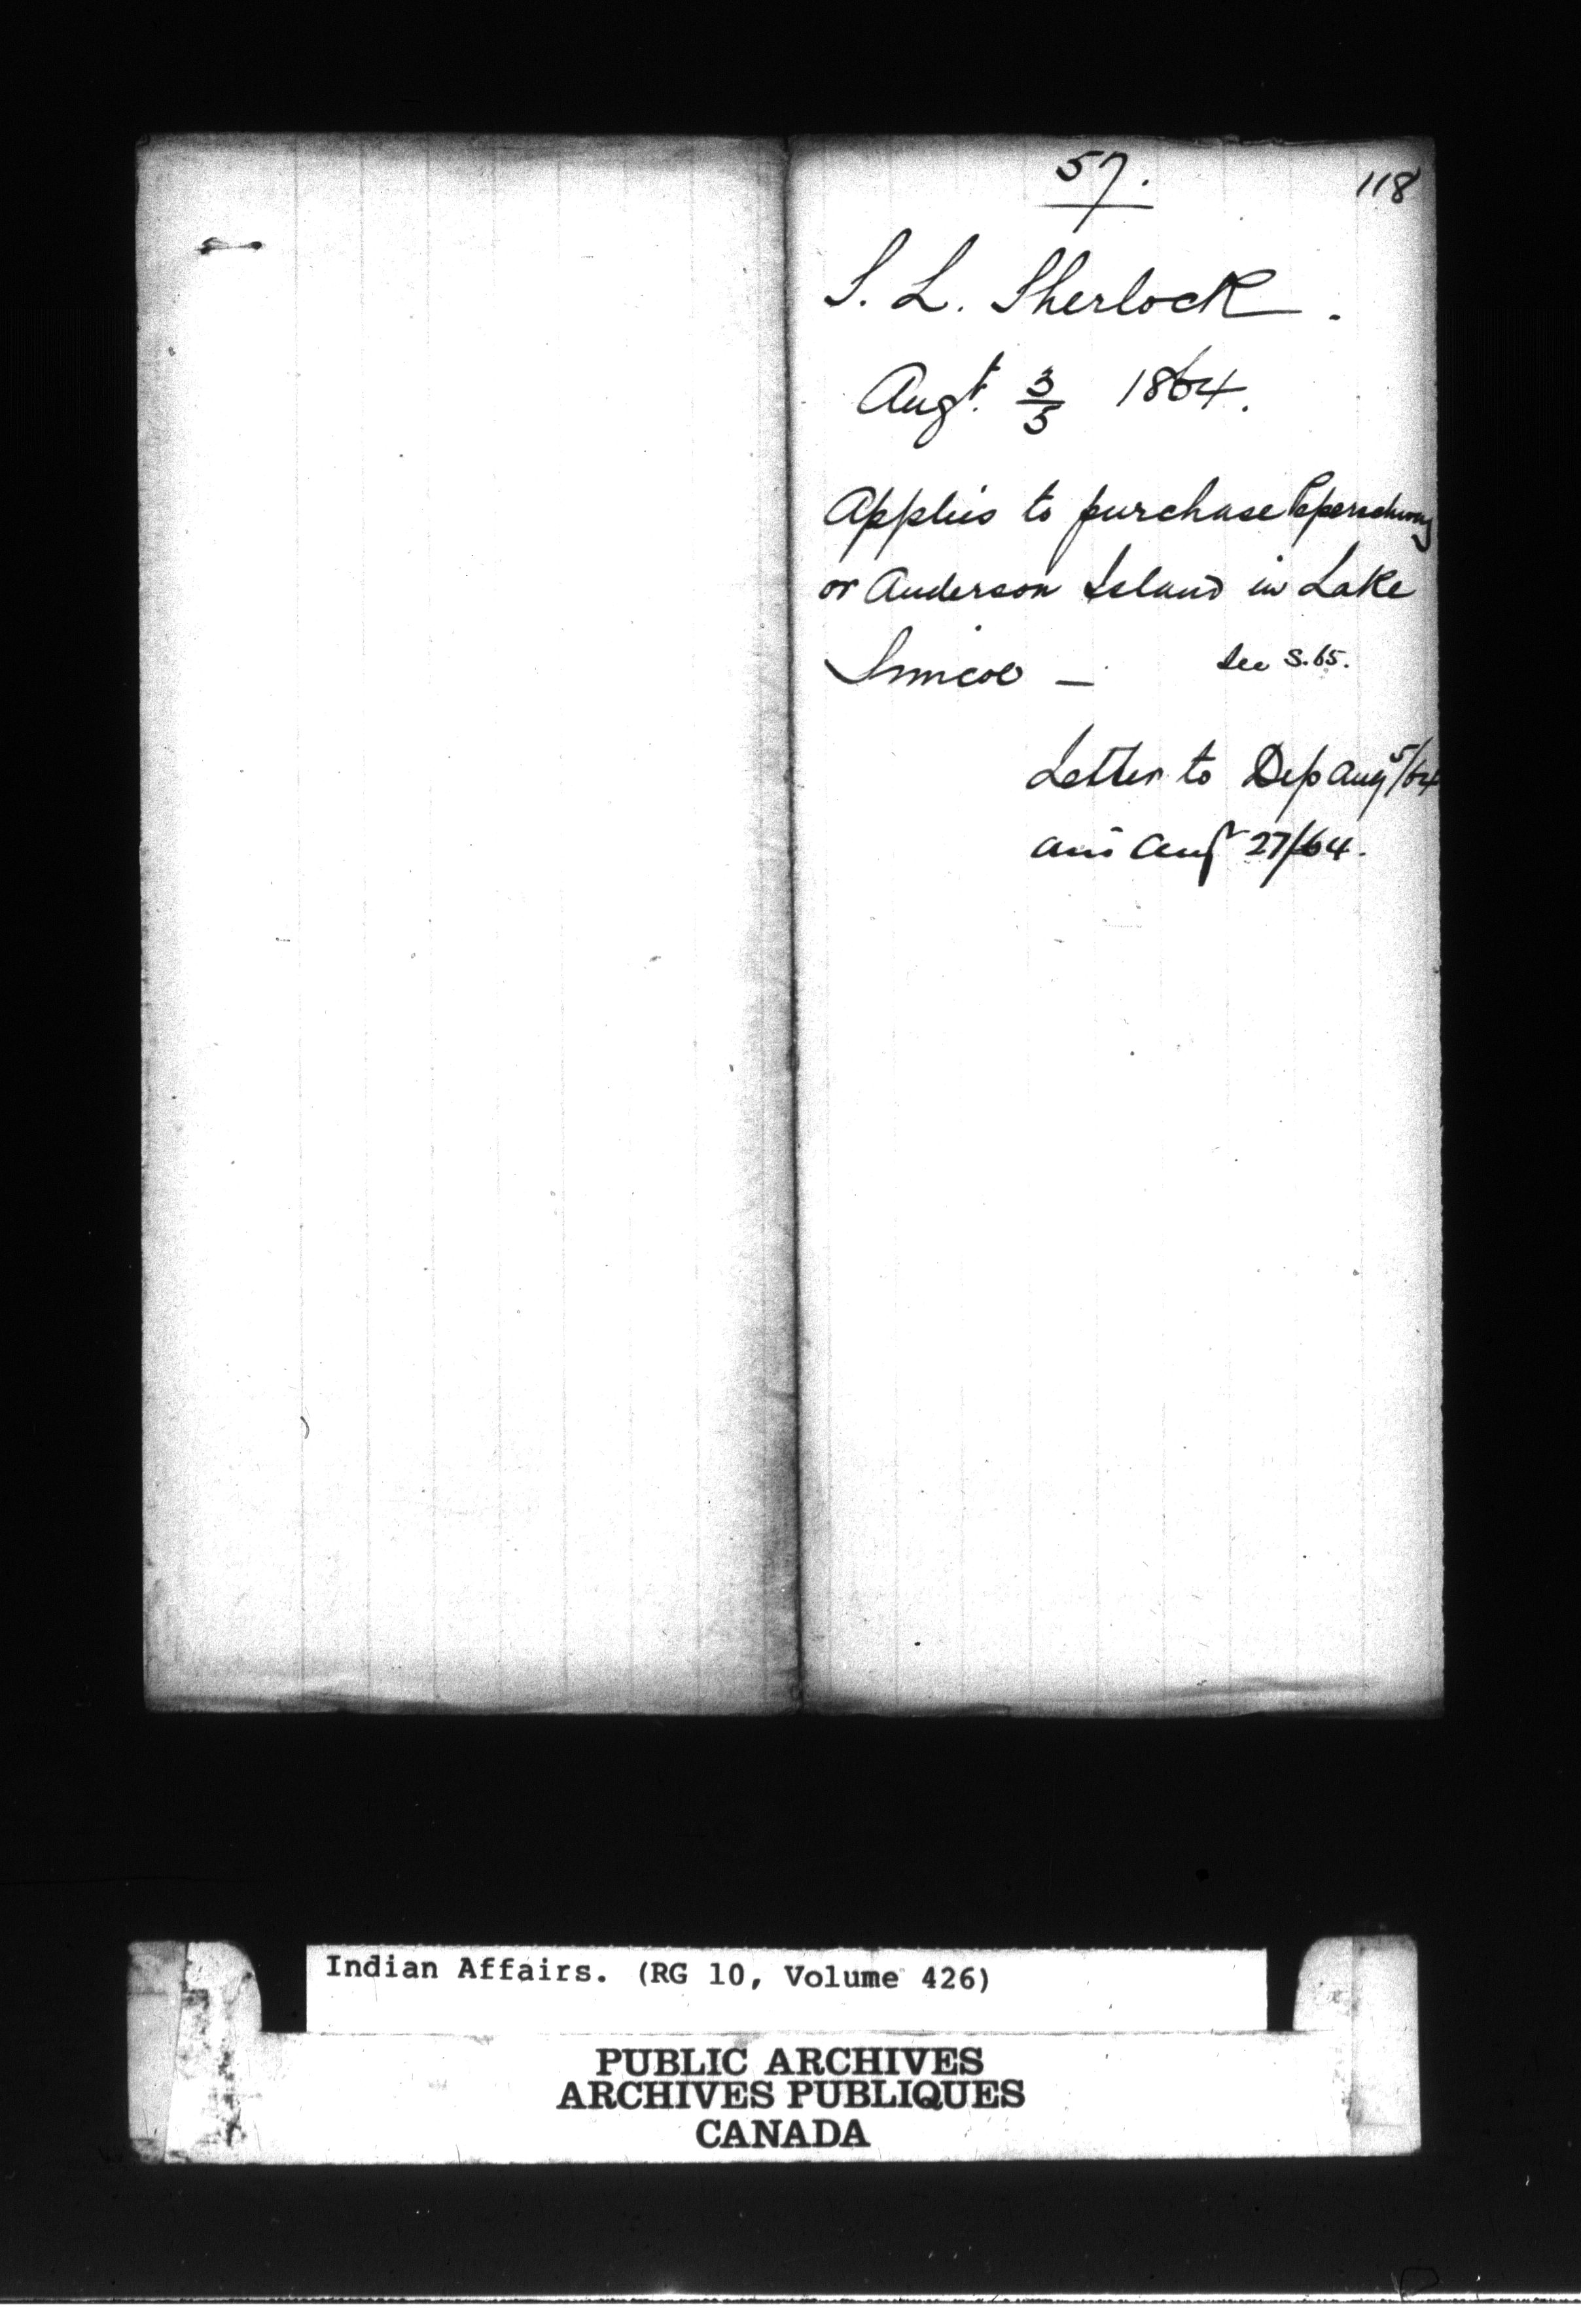 57.
118
S. L. Sherlock.
Augt. 3/5 1864.
Applies to purchase
or Anderson Island in Lake
Simcoe —
See S.65.
Letter to Dep Aug 5/64
Ans Augt 27/64.
Indian Affairs. (RG 10, Volume 426)
PUBLIC ARCHIVES
ARCHIVES PUBLIQUES
CANADA